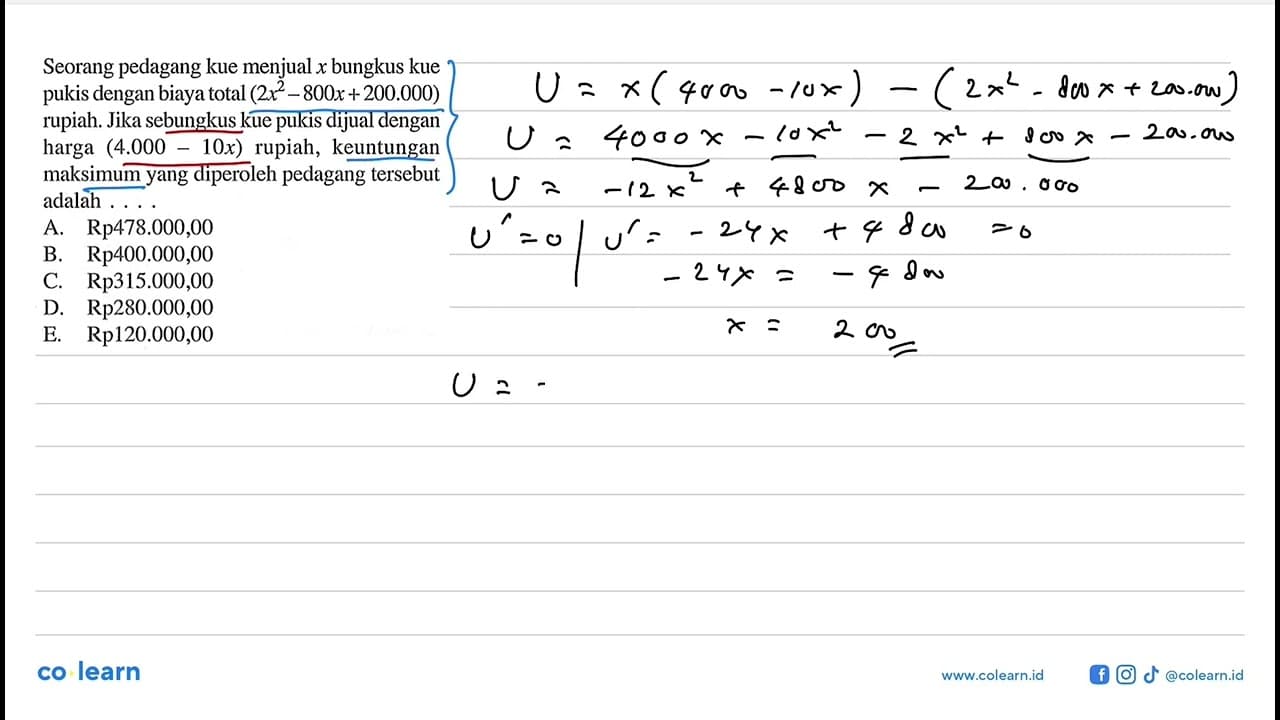 Seorang pedagang kue menjual x bungkus kue
pukis dengan biaya total (2x² – 800x + 200.000)
rupiah. Jika sebungkus kue pukis dijual dengan
harga (4.000 – 10x) rupiah, keuntungan
maksimum yang diperoleh pedagang tersebut
adalah . . . .
A. Rp478.000,00
B. Rp400.000,00
C. Rp315.000,00
D. Rp280.000,00
E. Rp120.000,00
U = x(4000 - 10x) - (2x² - 800x + 200.000)
U = 4000x - 10x² - 2x² + 800x - 200.000
U = -12x² + 4800x - 200.000
U' = 0 | U' = -24x + 4800 = 0
-24x = -4800
x = 200
U = -
co learn
www.colearn.id
@colearn.id